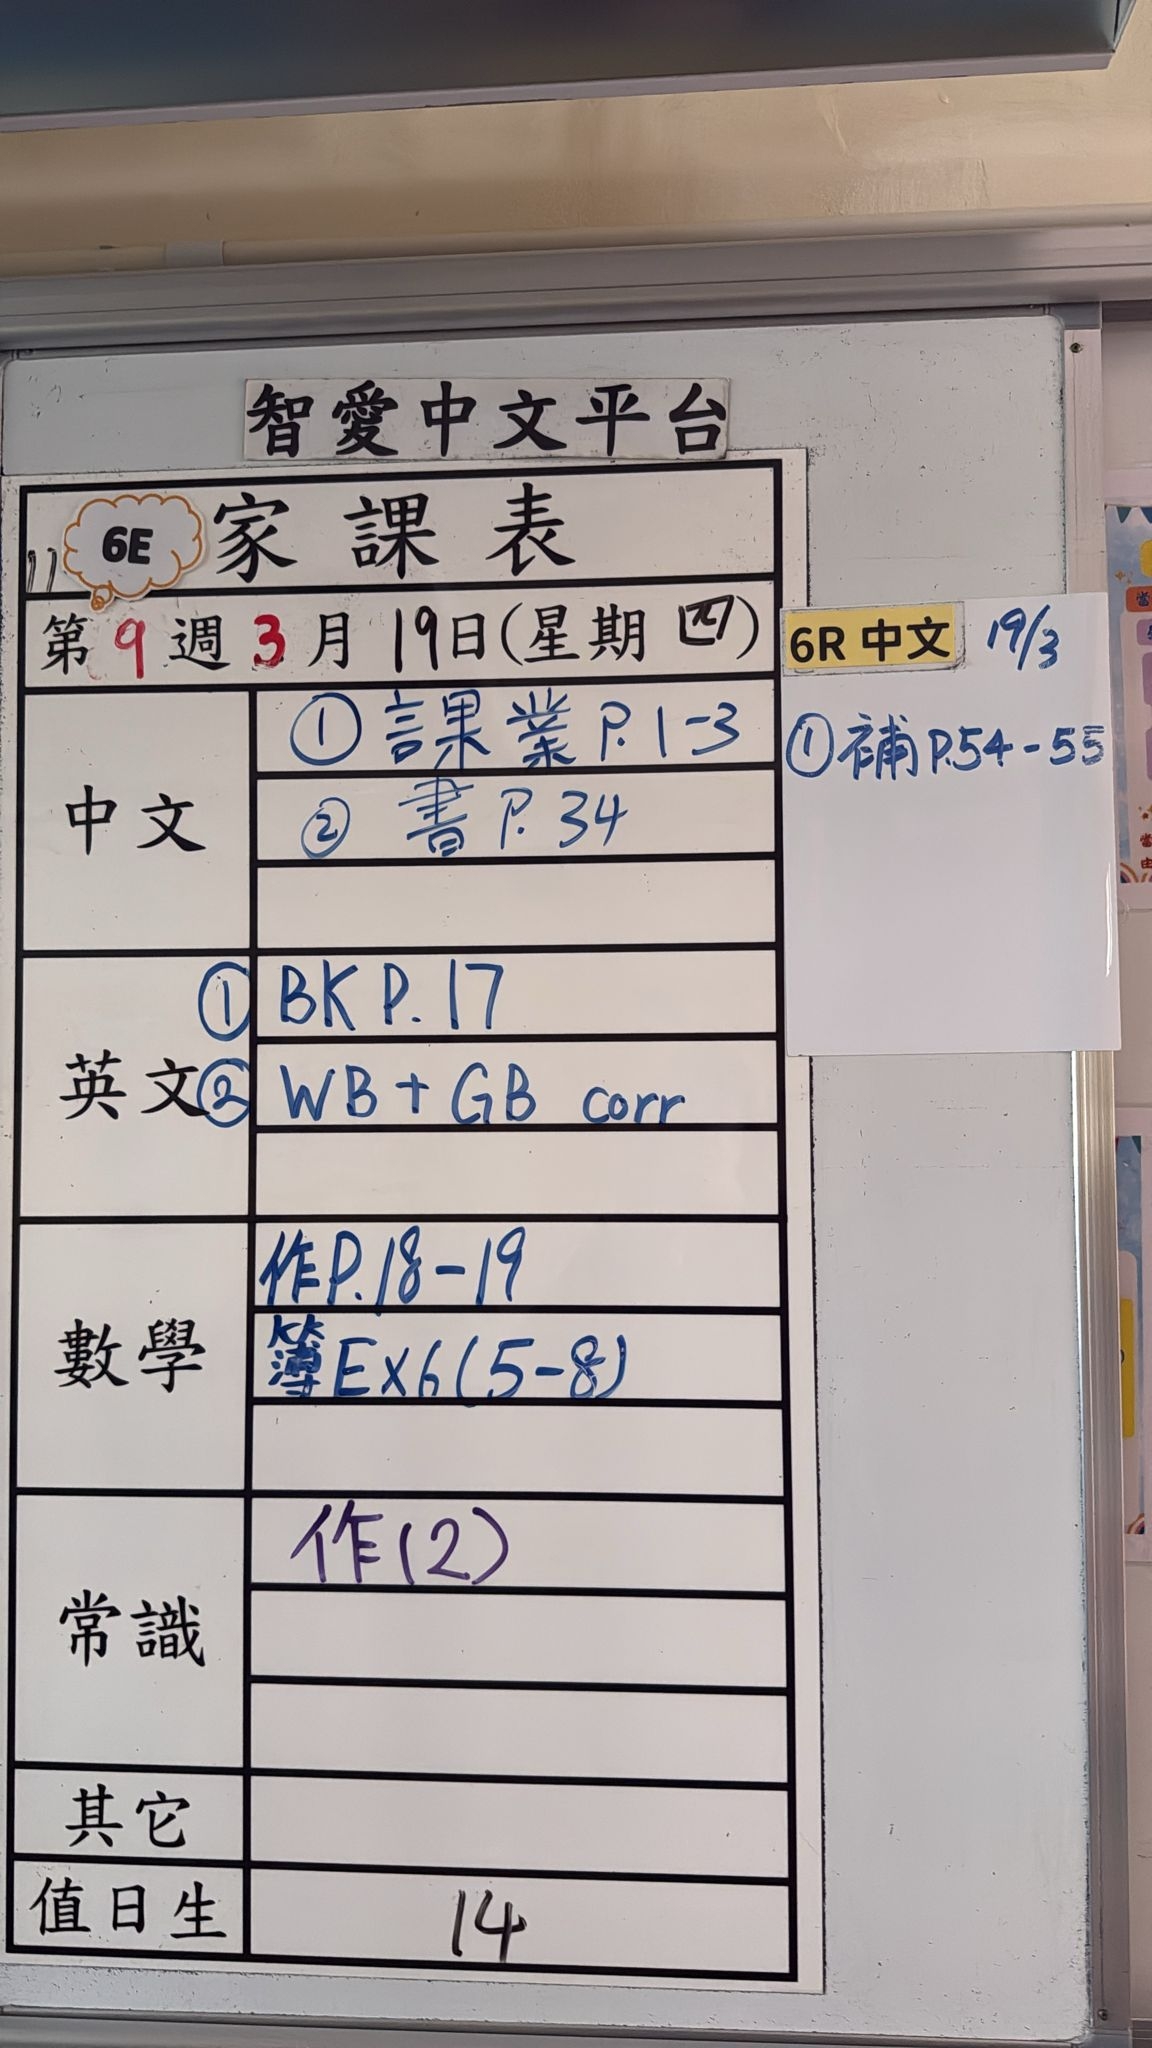 智愛中文平台
6E 家課表
第9週3月19日(星期四)
中文
①課業P.1-3
②書P.34
英文
①BK P.17
②WB + GB corr
數學
作P.18-19
簿Ex6(5-8)
常識
作(2)
其它
值日生
14
6R 中文 19/3
①補P.54-55